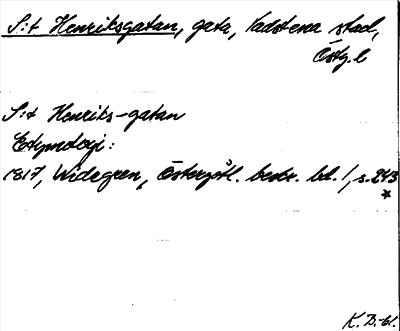 S:t Henriksgatan, gata, Vadstena stad,
Östg. l
S:t Henriks-gatan
Etymologi:
1817, Widegren, Östergötl. beskr. bd. 1, s. 243
*
K. D.-61.